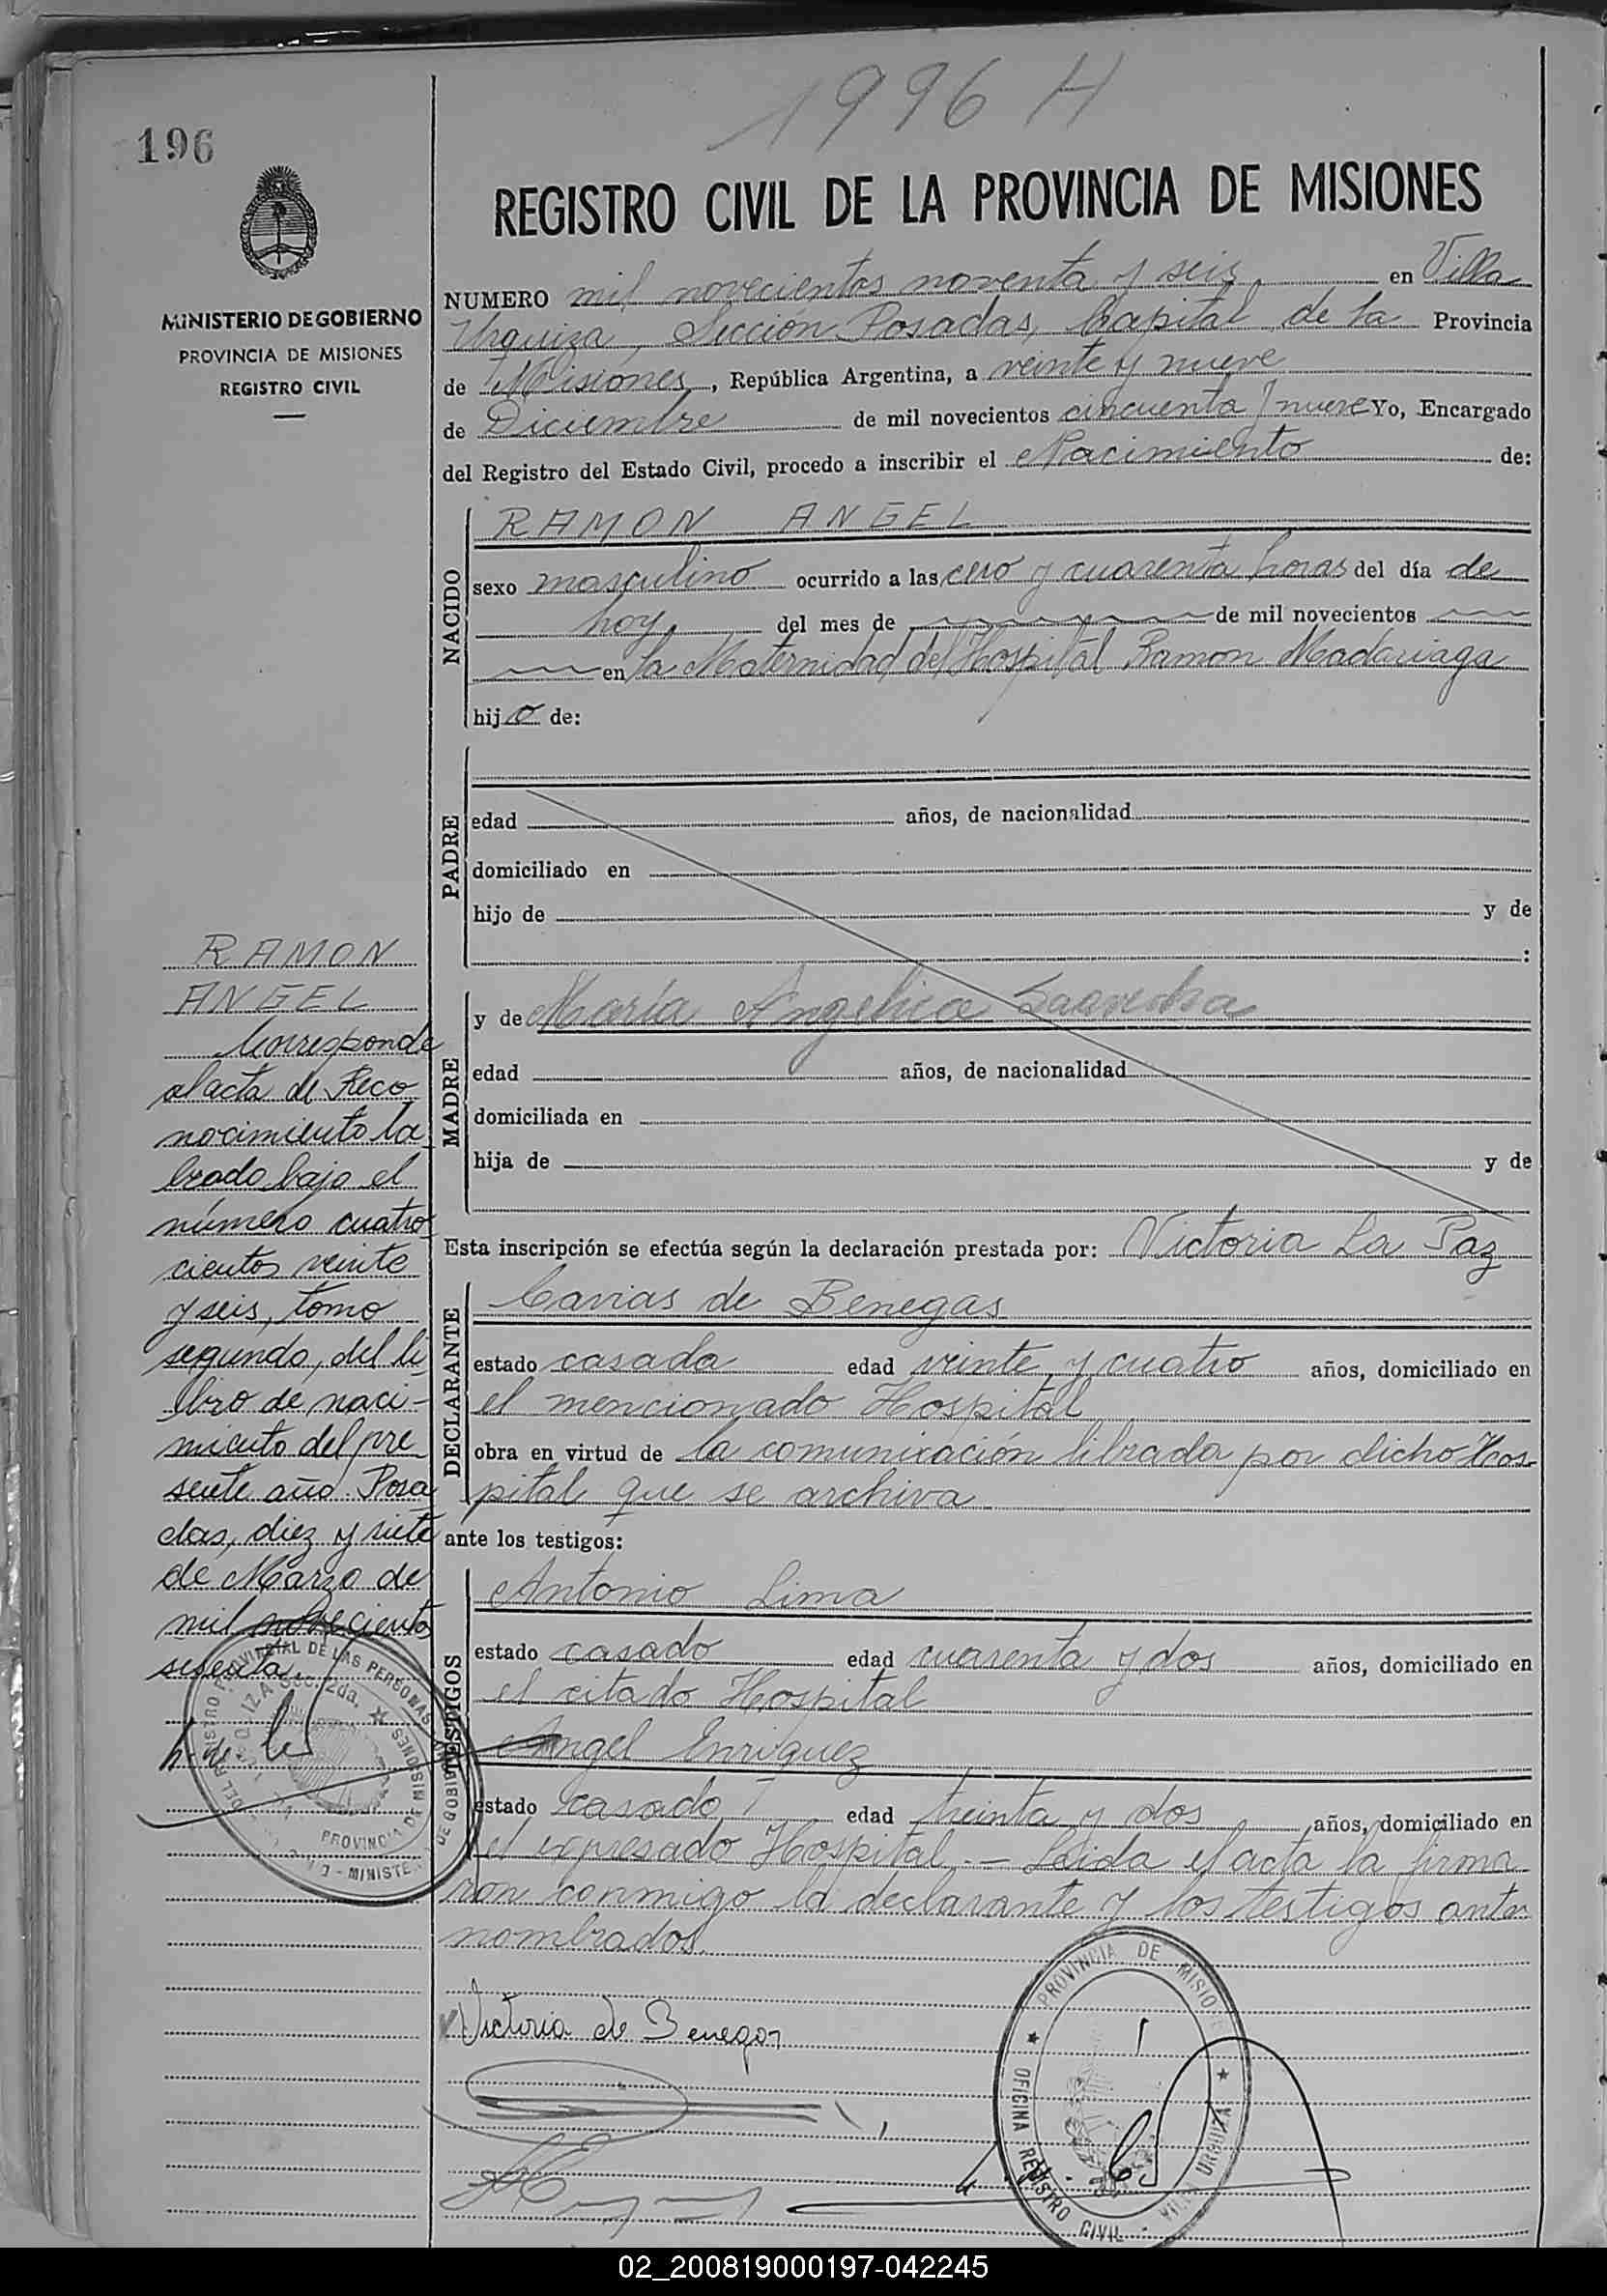 1996 H
196
REGISTRO CIVIL DE LA PROVINCIA DE MISIONES
MINISTERIO DE GOBIERNO
PROVINCIA DE MISIONES
REGISTRO CIVIL
NUMERO mil novecientos noventa y seis en Villa
Urquiza, Sección Posadas, Capital de la Provincia
de Misiones, República Argentina, a veinte y nueve
de Diciembre de mil novecientos cincuenta y nueve Yo, Encargado
del Registro del Estado Civil, procedo a inscribir el Nacimiento de:
NACIDO
RAMON ANGEL
sexo masculino ocurrido a las cero y cuarenta horas del día de
hoy, del mes de de mil novecientos
en la Maternidad del Hospital Ramon Madariaga
hijo de:
PADRE
edad años, de nacionalidad
domiciliado en
hijo de y de
:
MADRE
y de María Angelica Saavedra
edad años, de nacionalidad
domiciliada en
hija de y de
Esta inscripción se efectúa según la declaración prestada por: Victoria La Paz
DECLARANTE
Carias de Benegas
estado casada edad veinte y cuatro años, domiciliado en
el mencionado Hospital
obra en virtud de la comunicación librada por dicho Hos-
pital que se archiva
ante los testigos:
TESTIGOS
Antonio Lima
estado casado edad cuarenta y dos años, domiciliado en
el citado Hospital
Angel Enriquez
estado casado edad treinta y dos años, domiciliado en
el expresado Hospital.- Leida el acta la firma
ron conmigo la declarante y los testigos ante
nombrados.
Victoria de Benegas
RAMON
ANGEL
Corresponde
al acta de Reco
nocimiento la
brado bajo el
número cuatro
cientos veinte
y seis, tomo
segundo, del li
bro de naci-
miento del pre
sente año. Posa
das, diez y siete
de Marzo de
mil novecientos
sesenta.
PROVINCIAL DE LAS PERSONAS
Sec. 2da.
PROVINCIA DE MISIONES
PROVINCIA DE MISIONES
OFICINA REGISTRO CIVIL - VILLA URQUIZA
02_200819000197-042245